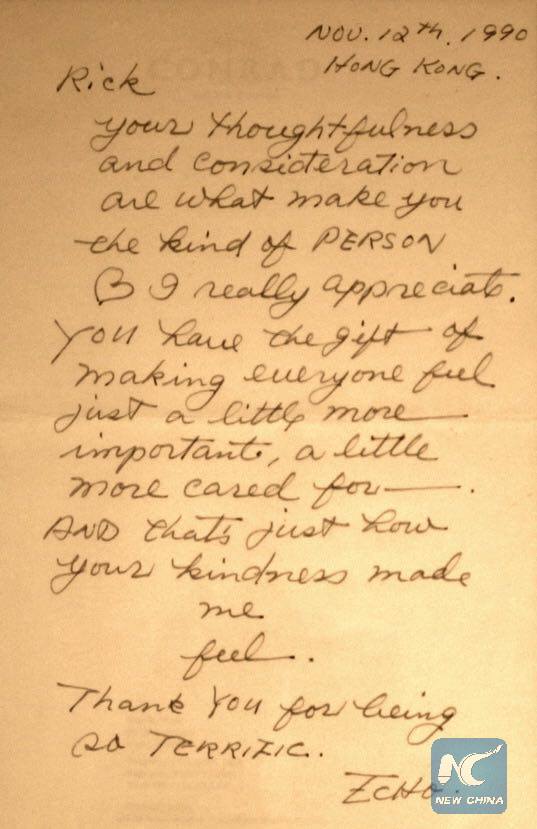 CONRAD
NOV. 12th. 1990
HONG KONG.
Rick
your thoughtfulness
and consideration
are what make you
the kind of PERSON
I really appreciate.
You have the gift of
making everyone feel
just a little more
important, a little
more cared for—.
AND that's just how
your kindness made
me
feel.
Thank You for being
so TERRIFIC.
ECHO.
NC
NEW CHINA